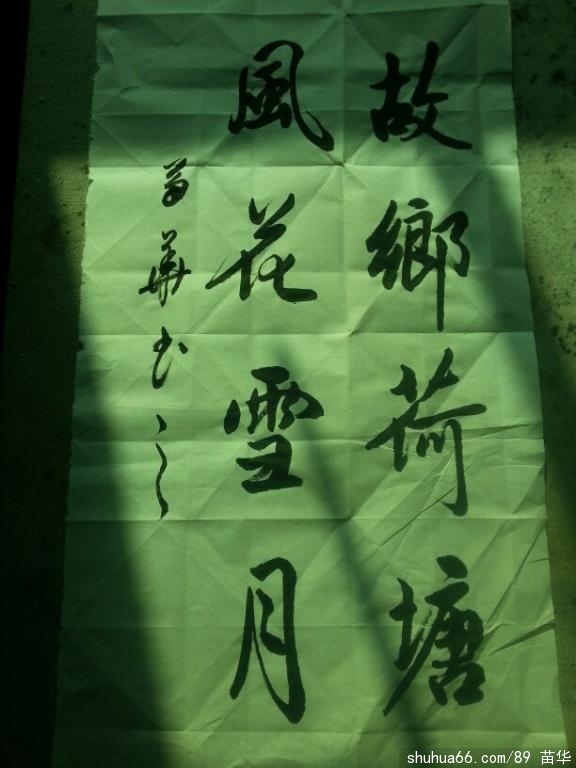 故鄉荷塘
風花雪月
苗華书之
shuhua66.com/89 苗华